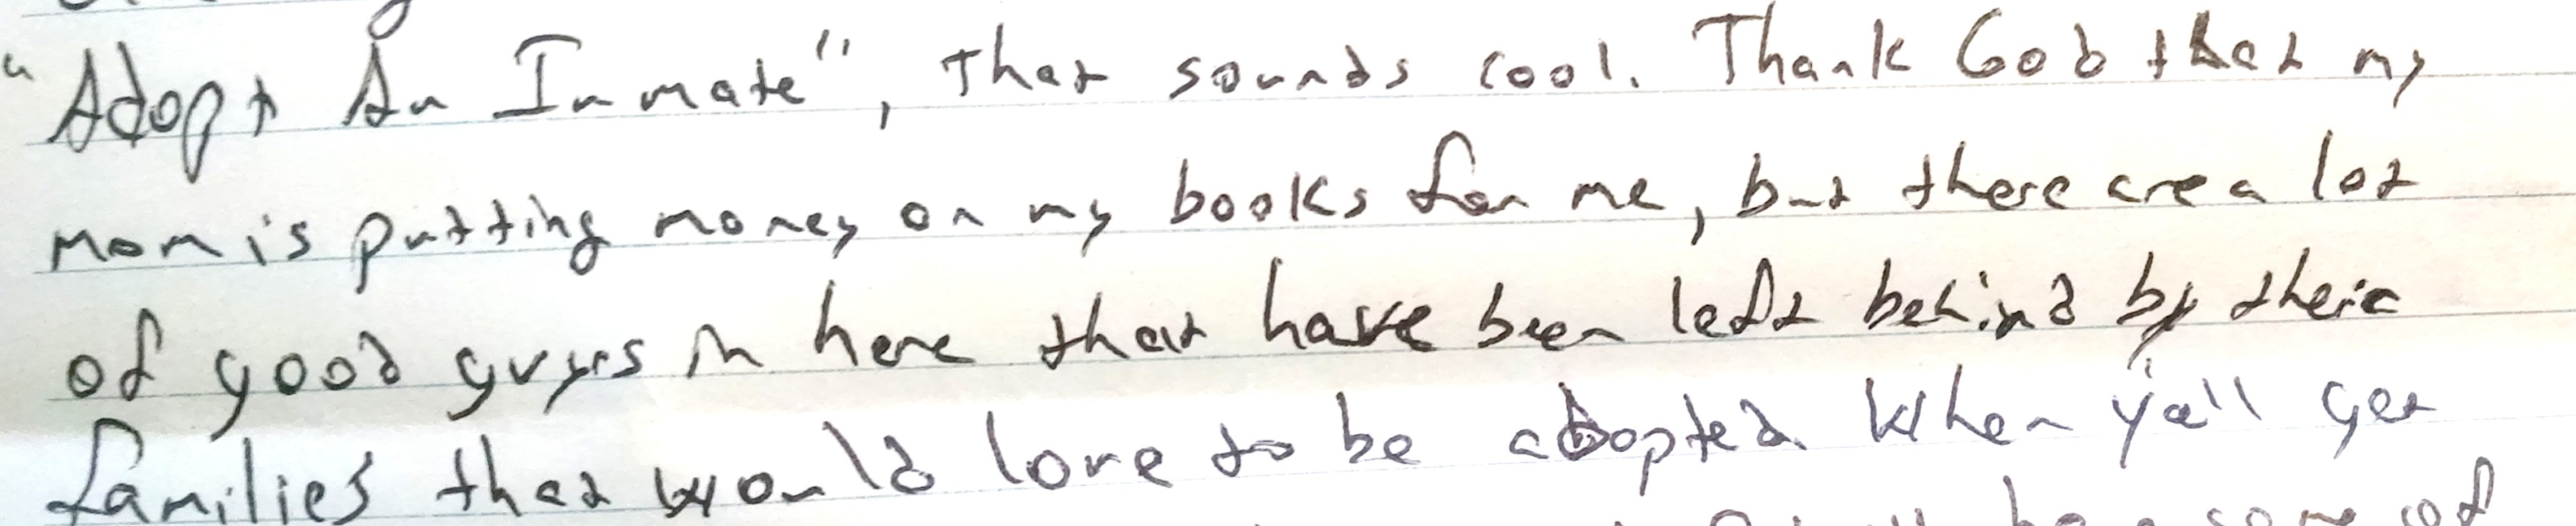 "Adopt An Inmate", That sounds cool. Thank God that my
Mom is putting money on my books for me, but there are a lot
of good guys in here that have been left behind by their
families that would love to be adopted when ya'll get